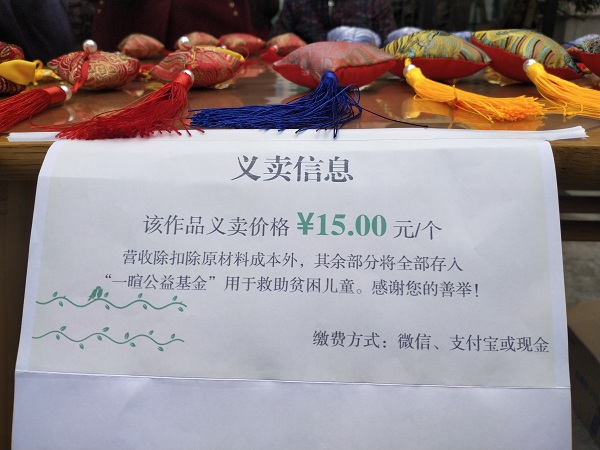 义卖信息
该作品义卖价格 ¥15.00 元/个
营收除扣除原材料成本外，其余部分将全部存入
“一暄公益基金”用于救助贫困儿童。感谢您的善举！
缴费方式：微信、支付宝或现金